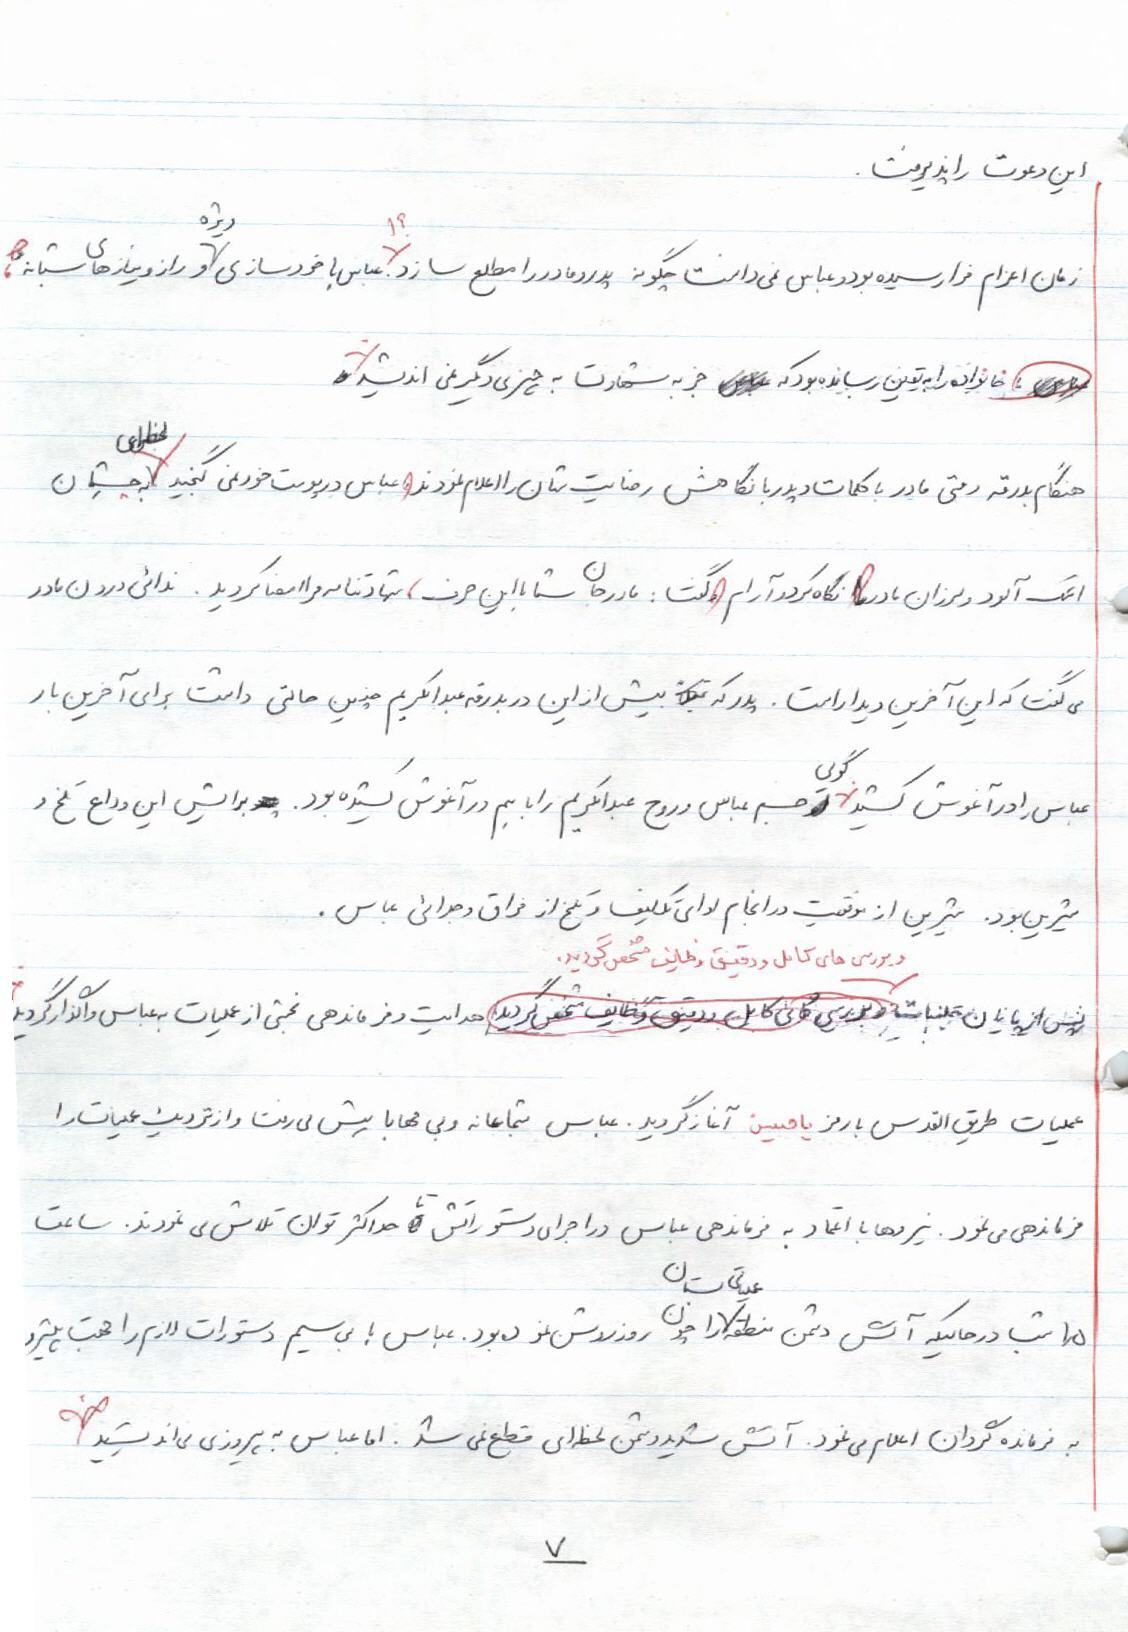 این دعوت را پذیرفت .
ویژه
زمان اعزام فرا رسیده بود و عباس نمی دانست چگونه پدر و مادر را مطلع سازد . عباس با خودسازی و راز و نیازهای شبانه
خانواده را به یقین رسانده بود که جز به شهادت به چیزی دیگر نمی اندیشد
لحظه‌ای
هنگام بدرقه وقتی مادر با کلمات و پدر با نگاهش رضایت شان را اعلام نمودند عباس در پوست خود نمی گنجید به چشمان
اشک آلود و لرزان مادر نگاه کرد و آرام گفت : مادر جان شما با این حرف ، شهادتنامه مرا امضا کردید . ندائی درون مادر
می گفت که این آخرین دیدار است . پدر که بیش از این در بدرقه عبدالکریم چنین حالتی داشت برای آخرین بار
گویی
عباس را در آغوش کشید جسم عباس و روح عبدالکریم را با هم در آغوش کشیده بود . برایش این وداع تلخ و
شیرین بود . شیرین از موفقیت در انجام ادای تکلیف و تلخ از فراق و جدائی عباس .
و بررسی های کامل و دقیق وظایف مشخص گردید .
پس از پایان و بررسی های کامل و دقیق وظایف مشخص گردید هدایت و فرماندهی بخشی از عملیات به عباس واگذار گردید
عملیات طریق القدس با رمز یا حسین آغاز گردید . عباس شجاعانه و بی مهابا پیش می رفت و از نزدیک عملیات را
فرماندهی می نمود . نیروها با اعتماد به فرماندهی عباس در اجرای دستوراتش تا حداکثر توان تلاش می نمودند . ساعت
عملیاتی شان
۱۰ شب در حالیکه آتش دشمن منطقه را چون روز روشن نموده بود . عباس با بی سیم دستورات لازم را جهت پیشرو
به فرمانده گردان اعلام می نمود . آتش شدید دشمن لحظه‌ای قطع نمی شد . اما عباس به پیروزی می اندیشید
۷